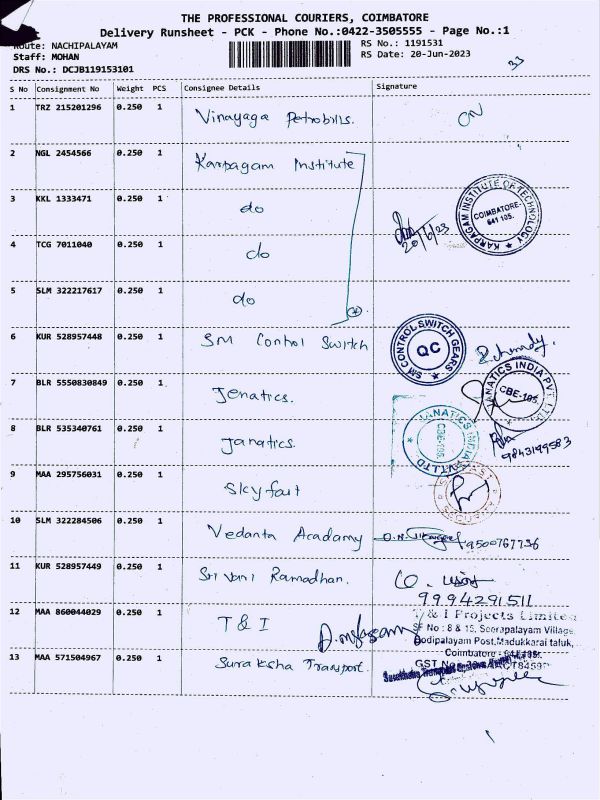 THE PROFESSIONAL COURIERS, COIMBATORE
Delivery Runsheet - PCK - Phone No.:0422-3505555 - Page No.:1
Route: NACHIPALAYAM
RS No.: 1191531
Staff: MOHAN
RS Date: 20-Jun-2023
DRS No.: DCJB119153101
33
S No Consignment No Weight PCS Consignee Details Signature
1 TRZ 215201296 0.250 1 Vinayaga Petrobills.
2 NGL 2454566 0.250 1 Karpagam Institute
3 KKL 1333471 0.250 1 do
20/6/23
KARPAGAM INSTITUTE OF TECHNOLOGY
COIMBATORE-
641 105.
4 TCG 7011040 0.250 1 do
5 SLM 322217617 0.250 1 do
6 KUR 528957448 0.250 1 SM Control Switch
SM CONTROL SWITCH GEARS
QC
7 BLR 5550830849 0.250 1 Jenatics.
JANATICS INDIA PVT. LTD
CBE-105.
8 BLR 535340761 0.250 1 Janatics.
JANATICS INDIA PVT.LTD
CBE-105.
9843199583
9 MAA 295756031 0.250 1 Skyfast
SECURITY
10 SLM 322284506 0.250 1 Vedanta Acadamy
9500767736
11 KUR 528957449 0.250 1 Sri Vani Ramadhan.
9994291511
12 MAA 860044029 0.250 1 T & I
T & I Projects Limited
SF No : 8 & 15, Seerapalayam Village,
Bodipalayam Post,Madukkarai taluk,
Coimbatore - 641 105.
13 MAA 571504967 0.250 1 Suraksha Transport.
GST No